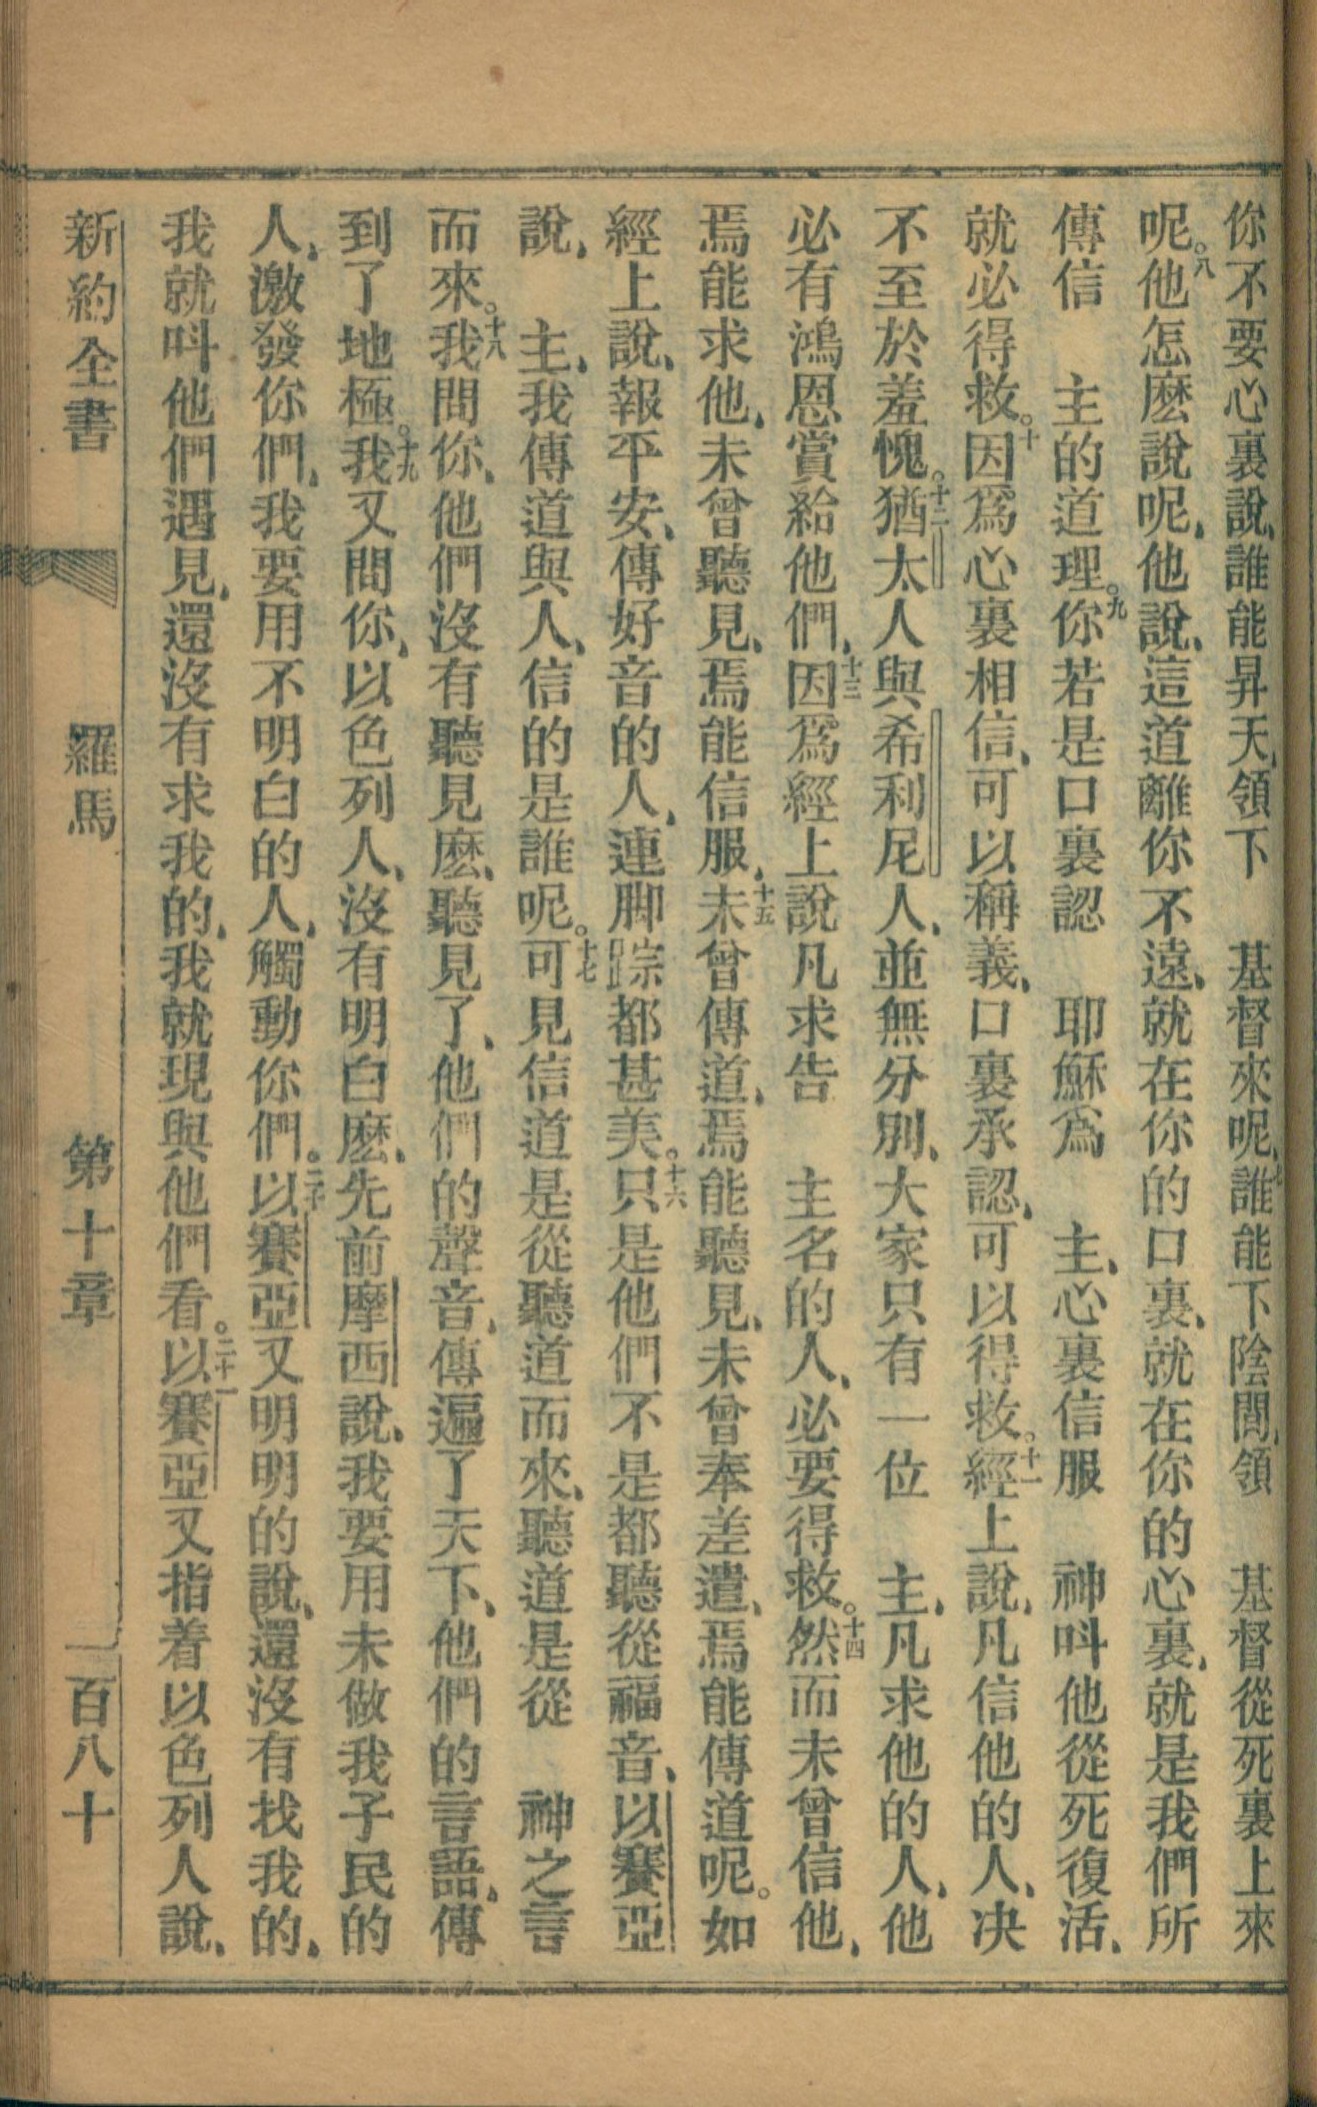 你不要心裏說、誰能昇天、領下　基督來呢、七誰能下陰間、領　基督從死裏上來
呢。八他怎麽說呢、他說、這道離你不遠、就在你的口裏、就在你的心裏、就是我們所
傳信　主的道理。九你若是口裏認　耶穌爲　主、心裏信服　神呌他從死復活、
就必得救。十因爲心裏相信、可以稱義、口裏承認、可以得救。十一經上說、凡信他的人、决
不至於羞愧。十二猶太人與希利尼人、並無分別、大家只有一位　主、凡求他的人、他
必有鴻恩賞給他們、十三因爲經上說凡求告　主名的人、必要得救。十四然而未曾信他、
焉能求他、未曾聽見、焉能信服、十五未曾傳道、焉能聽見、未曾奉差遣、焉能傳道呢。如
經上說、報平安、傳好音的人、連脚踪都甚美。十六只是他們不是都聽從福音、以賽亞
說、　主、我傳道與人、信的是誰呢。十七可見信道是從聽道而來、聽道是從　神之言
而來。十八我問你、他們沒有聽見麽、聽見了、他們的聲音、傳遍了天下、他們的言語、傳
到了地極。十九我又問你、以色列人、沒有明白麽、先前摩西說、我要用未做我子民的
人、激發你們、我要用不明白的人、觸動你們。二十以賽亞又明明的說、還沒有找我的、
我就呌他們遇見、還沒有求我的、我就現與他們看。二十一以賽亞又指着以色列人說、
新約全書　羅馬　第十章　一百八十